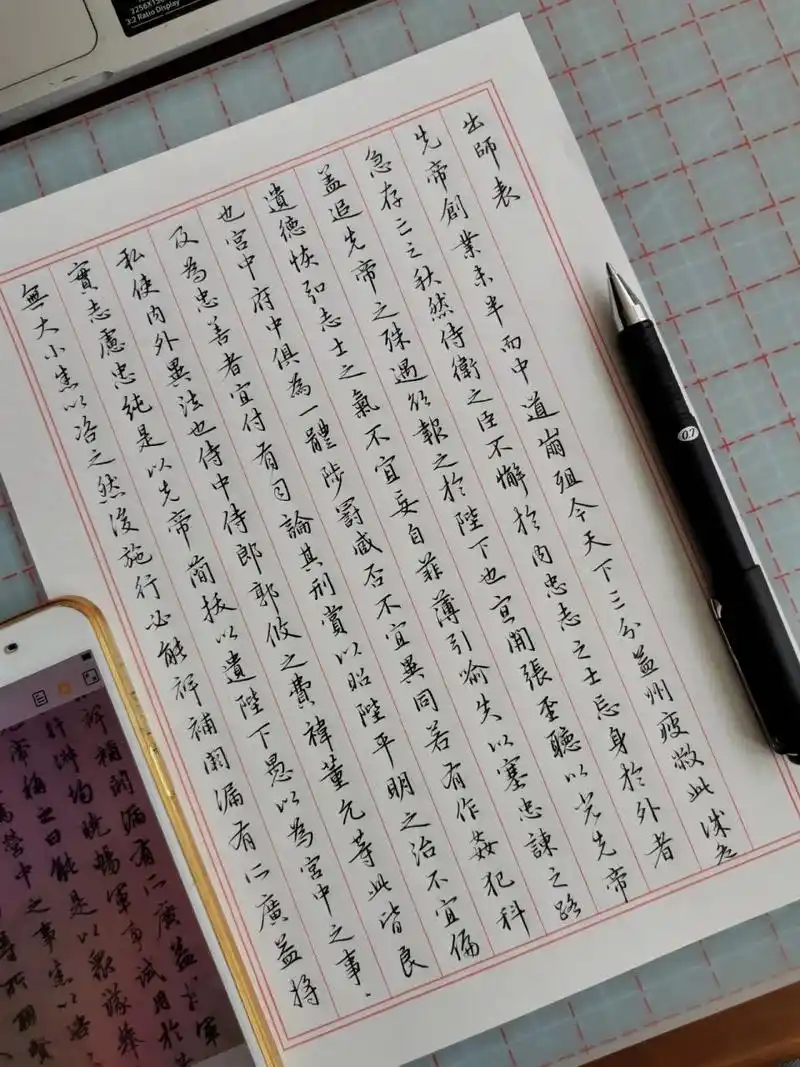 出師表
先帝創業未半而中道崩殂今天下三分益州疲敝此誠危
急存亡之秋然侍衛之臣不懈於內忠志之士忘身於外者
盖追先帝之殊遇欲報之於陛下也宜開張圣聽以光先帝
遺德恢弘志士之氣不宜妄自菲薄引喻失以塞忠諫之路
也宮中府中俱為一體陟罰臧否不宜異同若有作姦犯科
及為忠善者宜付有司論其刑賞以昭陛平明之治不宜偏
私使內外異法也侍中侍郎郭攸之費禕董允等此皆良
實志慮忠純是以先帝簡拔以遺陛下愚以為宮中之事
無大小悉以咨之然後施行必能裨補闕漏有所廣益將
裨補闕漏有所廣益將軍
行淑均曉暢軍事試用於
帝稱之曰能是以眾議舉
營中之事悉以咨
3:2 Ratio Display
0.7